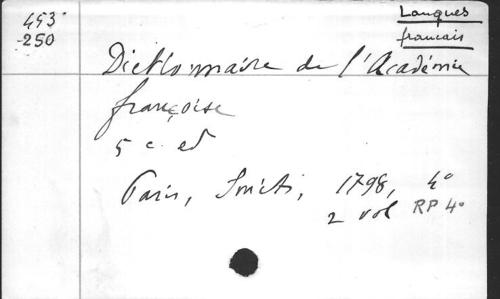 453
-250
Langues
français
Dictionnaire de l'Académie
françoise
5 e. ed
Paris, Smits, 1798, 4°
2 vol RP 4°